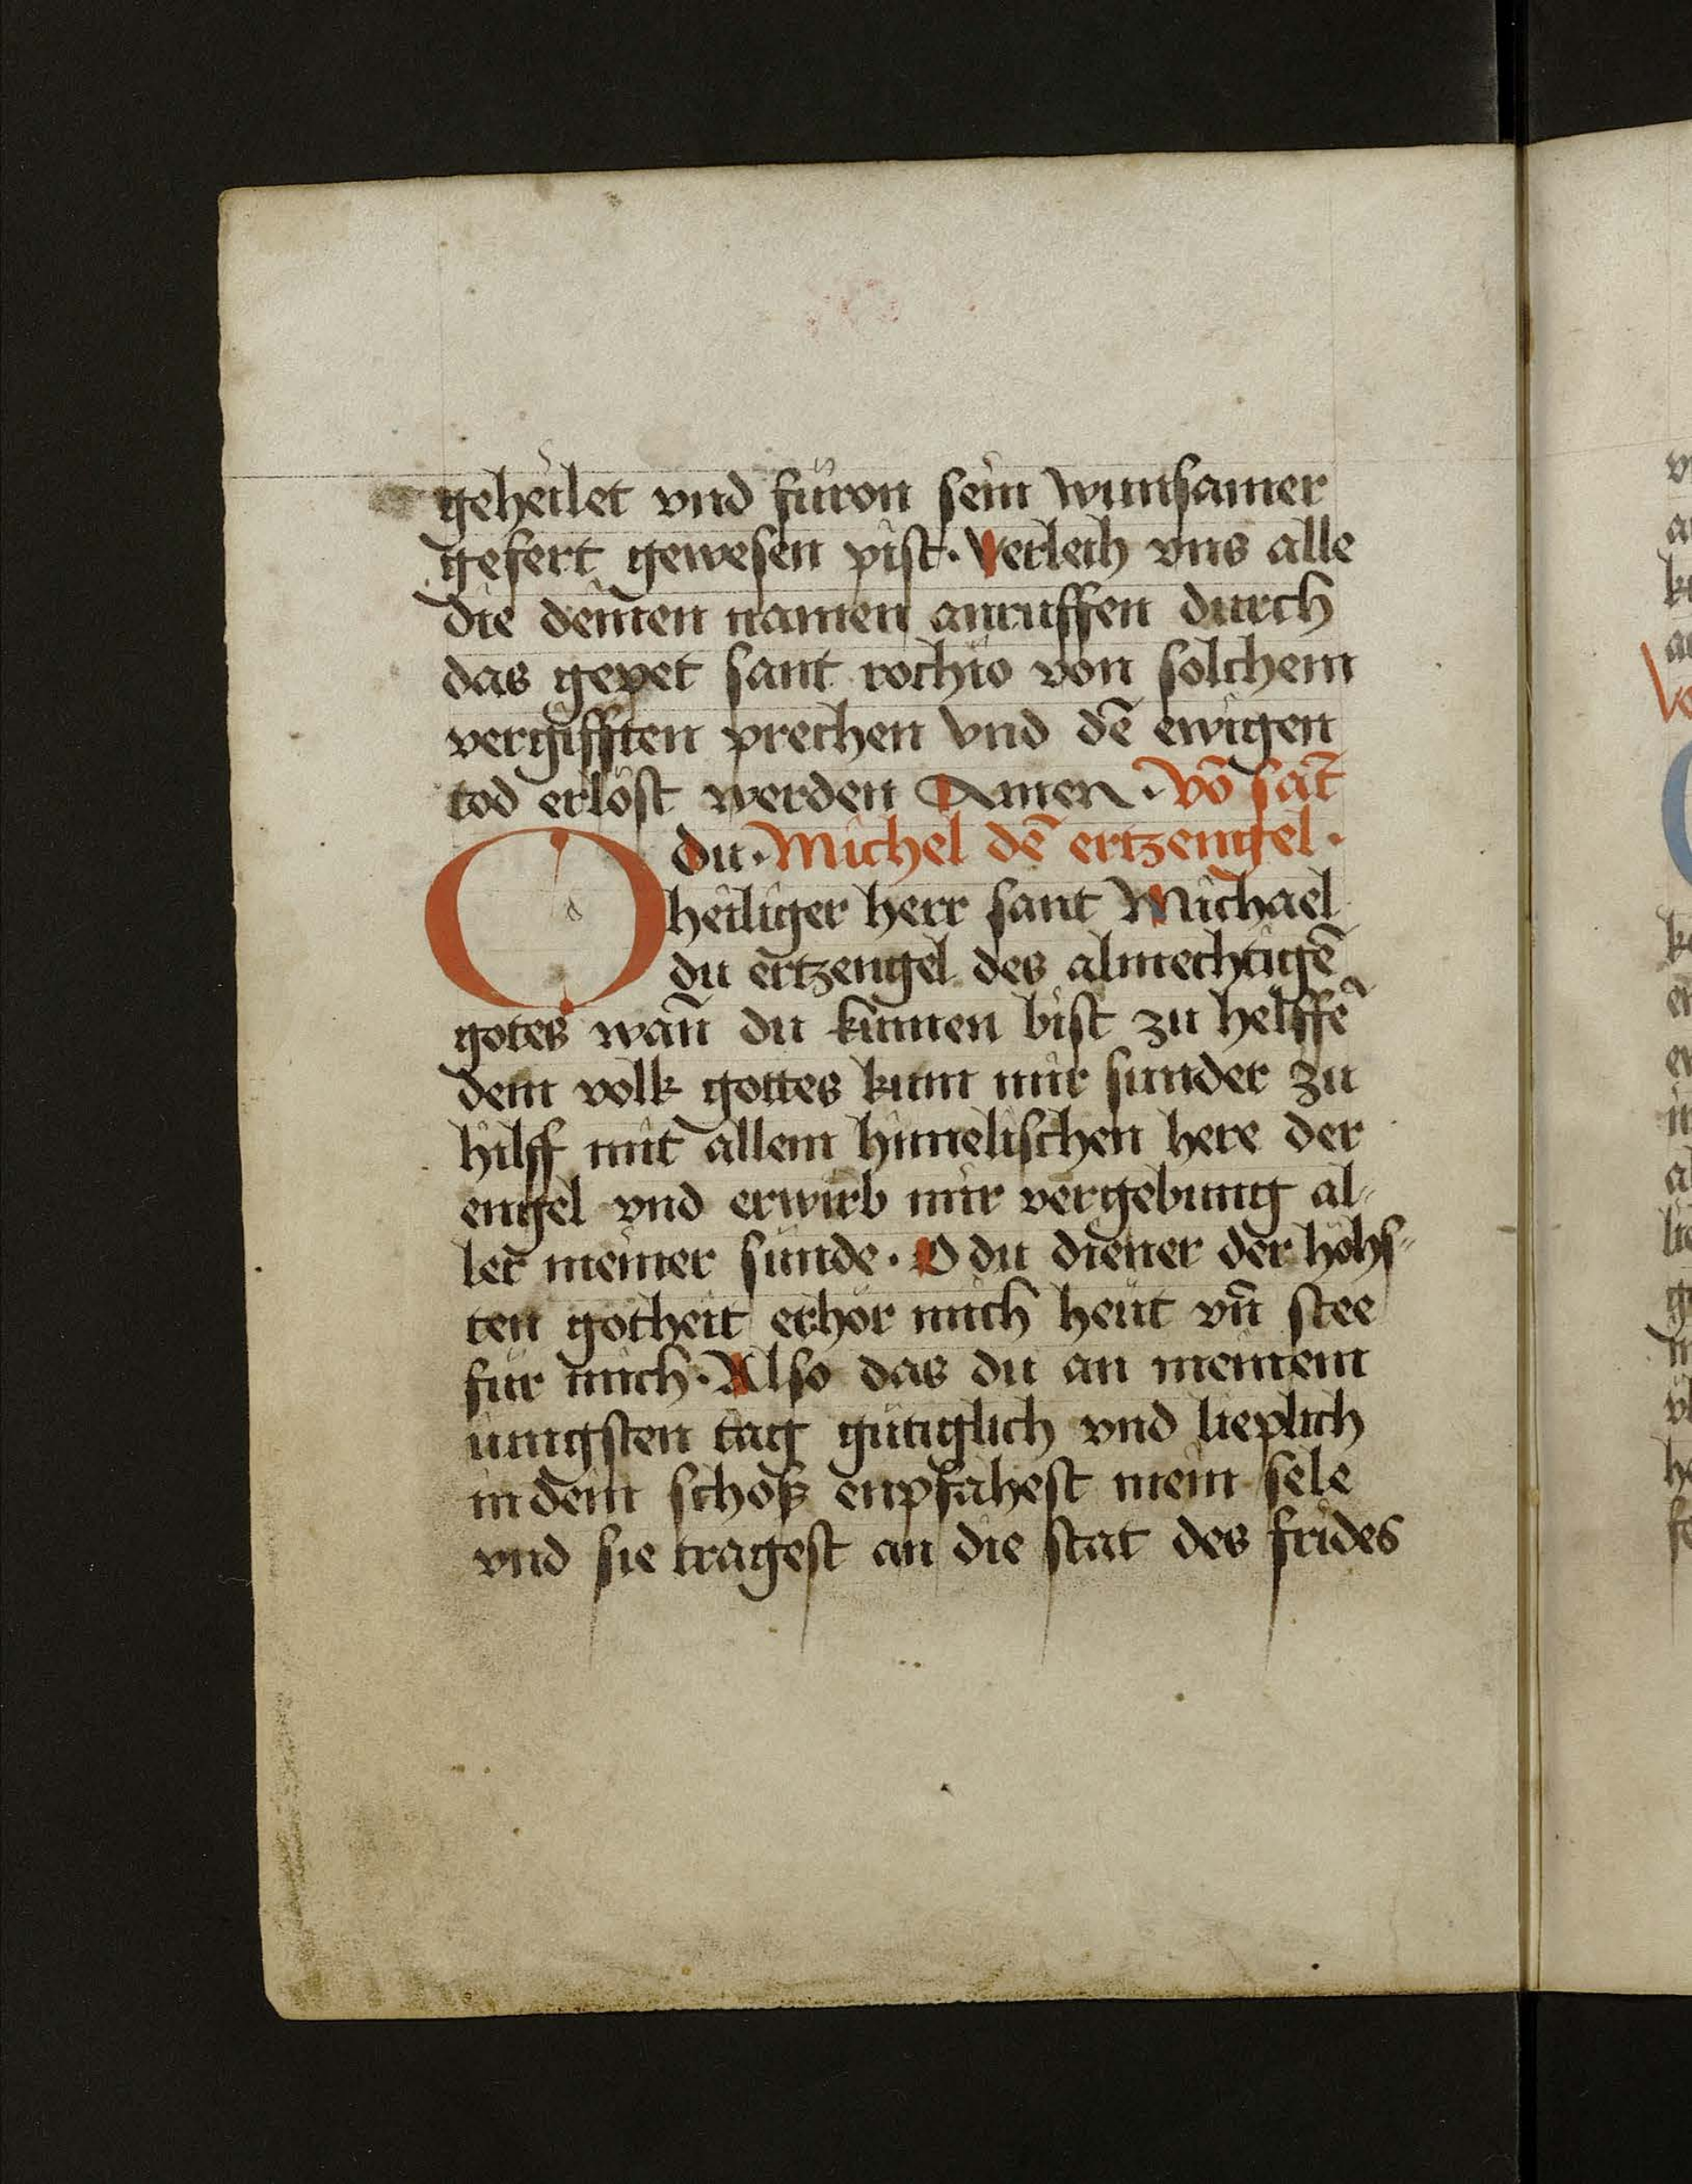 geheilet vnd füron sein wunsamer
gefert gewesen pist · Verleih vns alle
die deinen namen anruffen durch
das gepet sant rochio von solchem
vergifften prechen vnd dē ewigen
tod erlöst werden Amen · Vō sāt
O du · Michel dē ertzengel ·
heiliger herr sant Michael
du ertzengel des almechtigē
gotes wan̄ du kūmen bist zu helffē
dem volk gottes kum mir sunder zu
hilff mit allem himelischen here der
engel vnd erwirb mir vergebung al⸗
ler meiner sünde · O du diener der höhs⸗
ten gotheit erhör mich heüt vn̄ stee
für mich · Also das du an meinem
iungsten tag gütiglich vnd lieplich
in dein schoß enpfahest mein sele
vnd sie tragest an die stat des frides